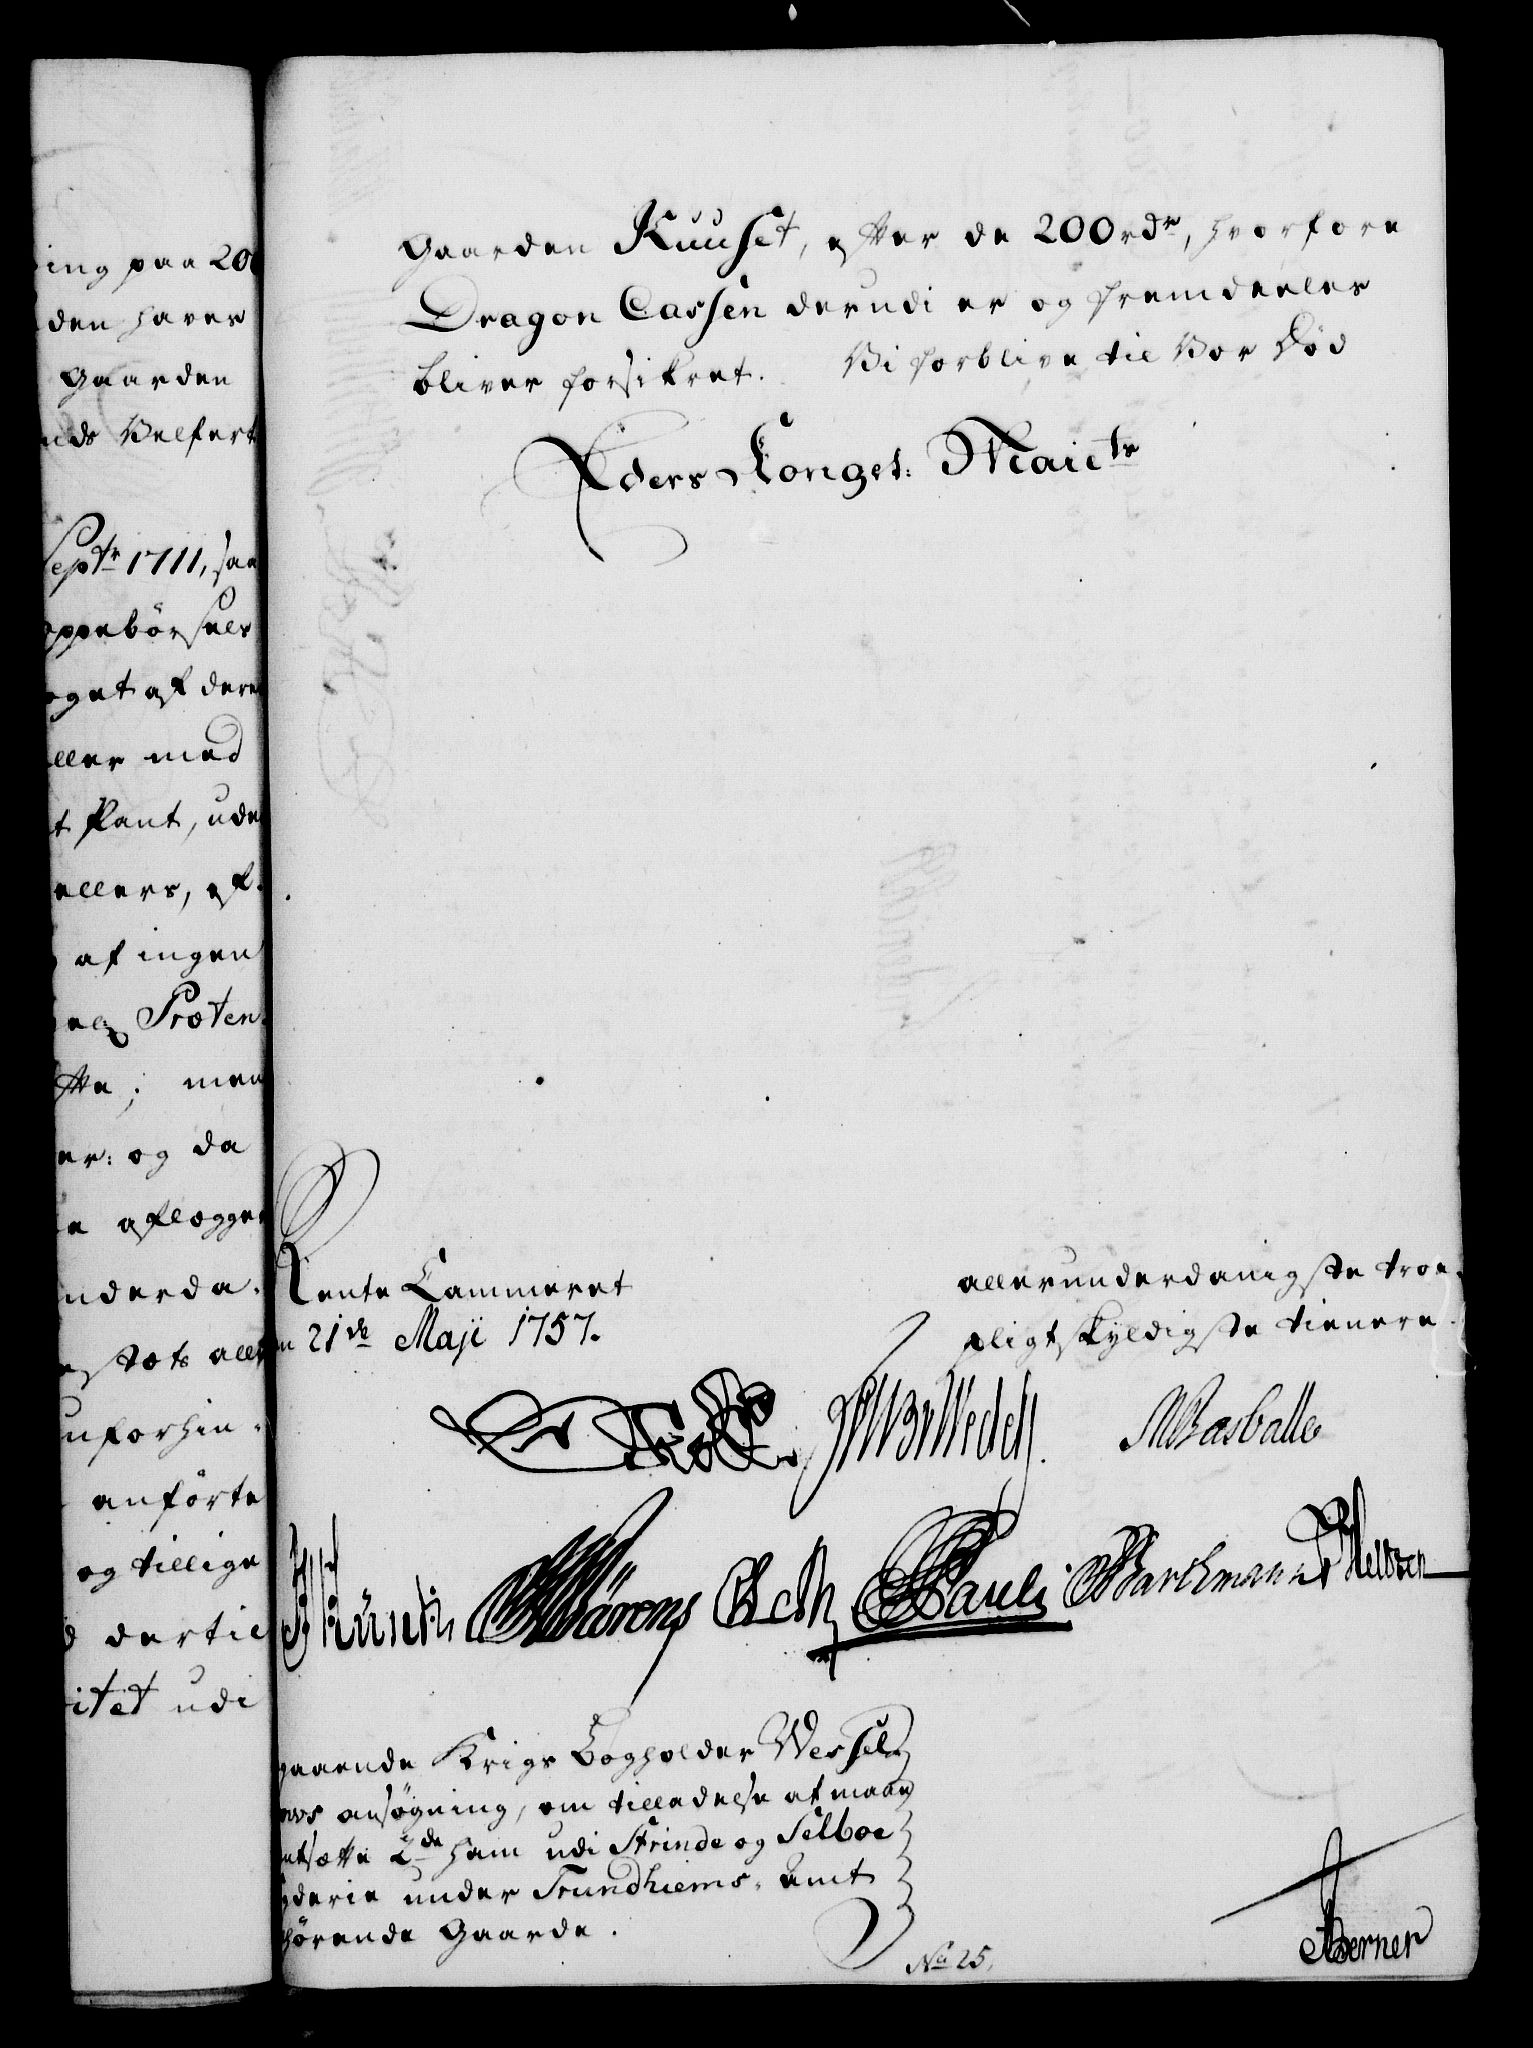 ing paa 200
den haver
Gaarden
nds Velfert
Septr 1711, saa
oppebörsels
oget af dere
ller med
t Pant, ude
ellers, ef-
af ingen
Præten-
tte; men
er: og da
e aflægge
nderda-
estets aller
unforhin-
anförte
og tillige
dertil
itet udi
Gaarden Kuuset, efter de 200 rdr, hvorfore
Dragon Cassen derudi er og fremdeeles
bliver forsikret. Vi forblive til Vor Död
Eders Kongel: Maiets
Rente Cammeret
n 21de Maji 1757.
allerunderdanigste troe-
pligtskyldigste tienere.
Wedell. MBasballe
Pauli Barchmann
gaaende Krigs Bogholder Wessel
ansögning, om tilladelse at maae
ntsætte 2de ham udi Strinde og Selboe
gderie under Trundhiems Amt
hörende Gaarde.
No 25.
Berner